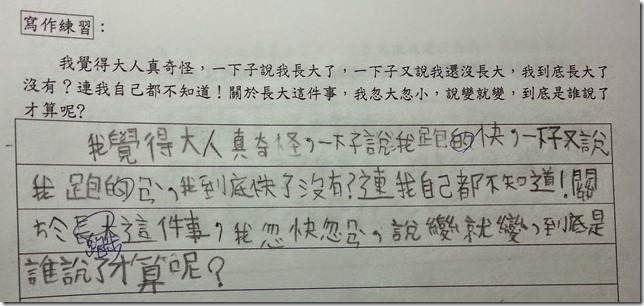 寫作練習：
我覺得大人真奇怪，一下子說我長大了，一下子又說我還沒長大，我到底長大了
沒有？連我自己都不知道！關於長大這件事，我忽大忽小，說變就變，到底是誰說了
才算呢？
我覺得大人真奇怪，一下子說我跑的快，一下子又說
我跑的，我到底快了沒有？連我自己都不知道！關
於長大了這件事，我忽快忽，說變就變，到底是
誰說了才算呢？